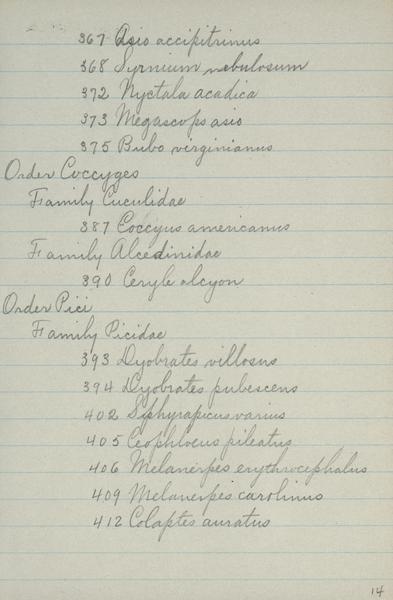 367 Asio accipitrinus
368 Syrnium nebulosum
372 Nyctala acadica
373 Megascops asio
375 Bubo virginianus
Order Coccyges
Family Cuculidae
387 Coccyus americanus
Family Alcedinidae
390 Ceryle alcyon
Order Pici
Family Picidae
393 Dyobrates villosus
394 Dyobrates pubescens
402 Sphyrapicus varius
405 Ceophloeus pileatus
406 Melanerpes erythrocephalus
409 Melanerpes carolinus
412 Colaptes auratus
14